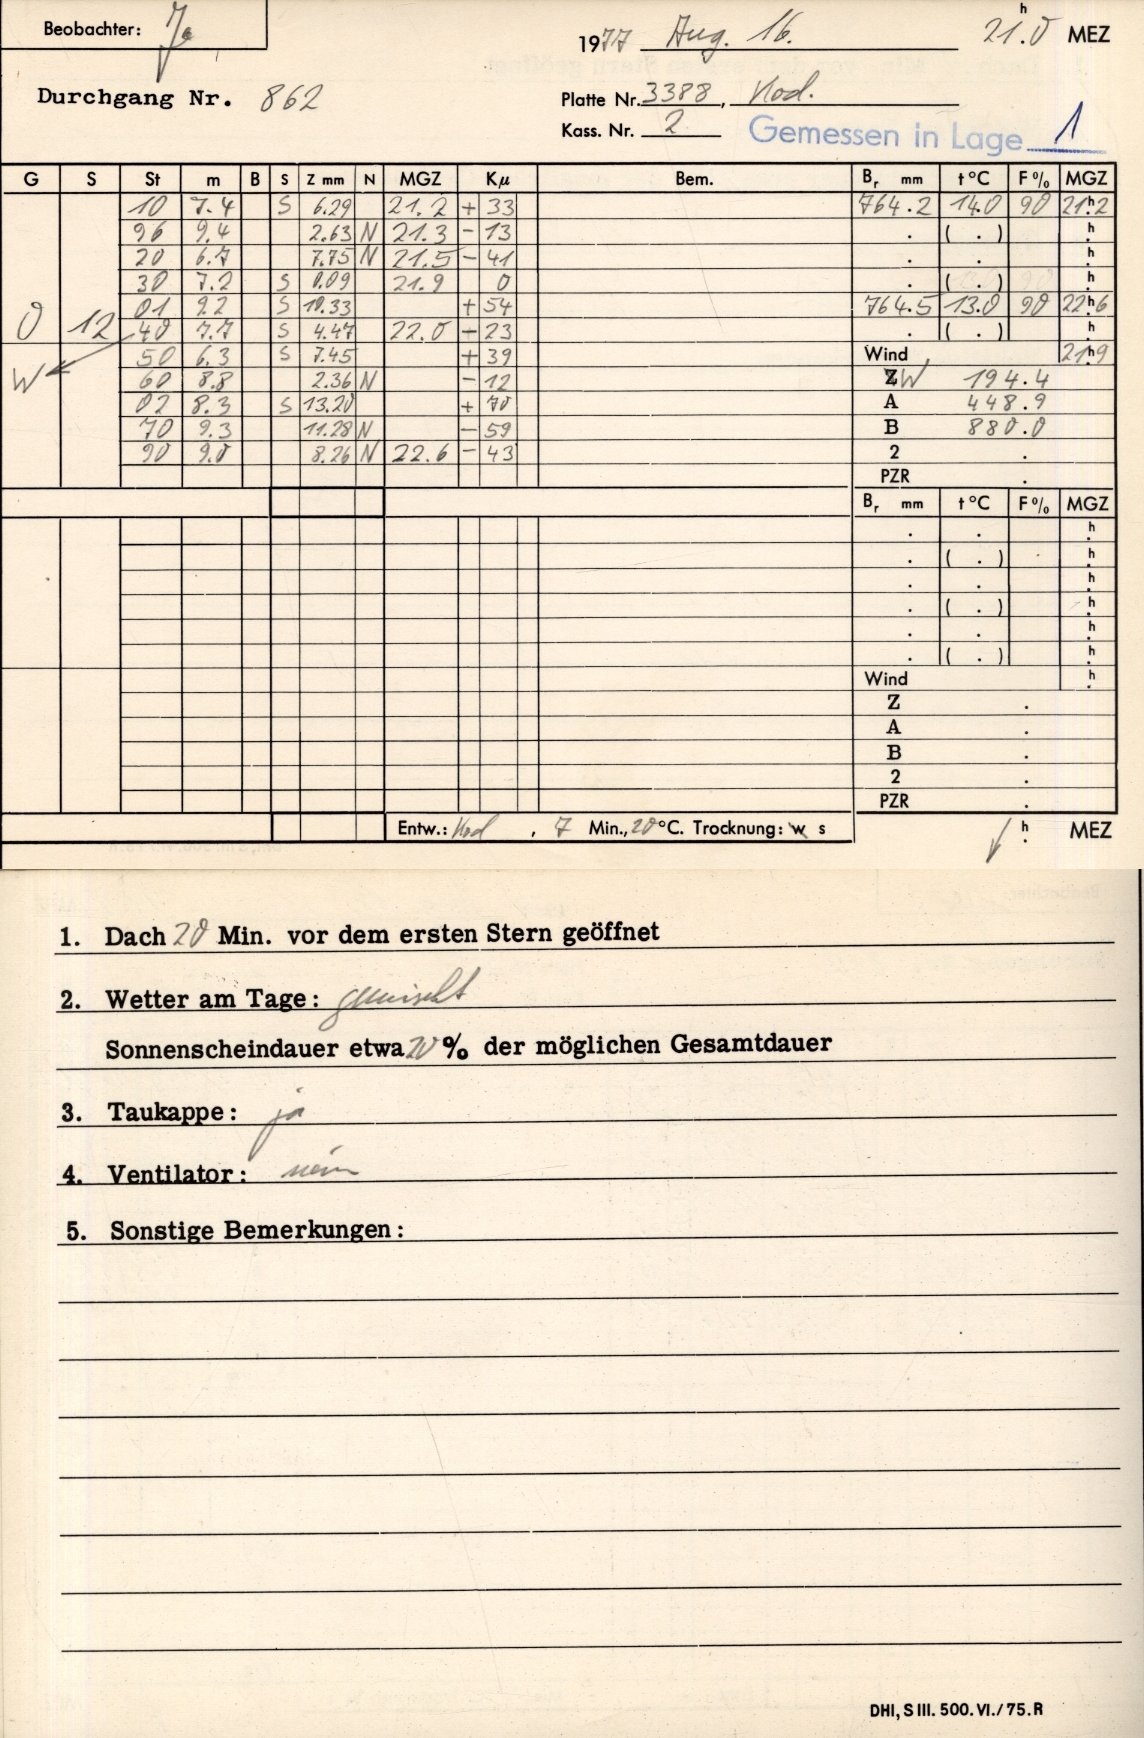 Beobachter: Ja
1977 Aug. 16. 21.0 h MEZ
Durchgang Nr. 862
Platte Nr. 3388, Kod.
Kass. Nr. 2 Gemessen in Lage 1
G S St m B S Z mm N MGZ Kμ Bem. Br mm t °C F % MGZ
10 7.4 S 6.29 21.2 + 33 764.2 14.0 90 21h2
96 9.4 2.63 N 21.3 - 13 . ( . ) h
20 6.7 7.75 N 21.5 - 41 . . h
30 7.2 S 0.09 21.9 0 . ( . ) h
01 9.2 S 10.33 + 54 764.5 13.0 90 22h6
O 12 40 7.7 S 4.47 22.0 - 23 . ( . ) h
50 6.3 S 7.45 + 39 Wind 21h9
W 60 8.8 2.36 N - 12 Z W 194.4
02 8.3 S 13.20 + 70 A 448.9
70 9.3 11.28 N - 59 B 880.0
90 9.0 8.26 N 22.6 - 43 2 .
PZR .
Br mm t °C F % MGZ
. . h
. ( . ) h
. . h
. ( . ) h
. . h
. ( . ) h
Wind h
Z .
A .
B .
2 .
PZR .
Entw.: Kod , 7 Min., 20 °C. Trocknung: w s h MEZ
1. Dach 20 Min. vor dem ersten Stern geöffnet
2. Wetter am Tage: gemischt
Sonnenscheindauer etwa 20 % der möglichen Gesamtdauer
3. Taukappe: ja
4. Ventilator: nein
5. Sonstige Bemerkungen:
DHI, S III. 500. VI./75. R